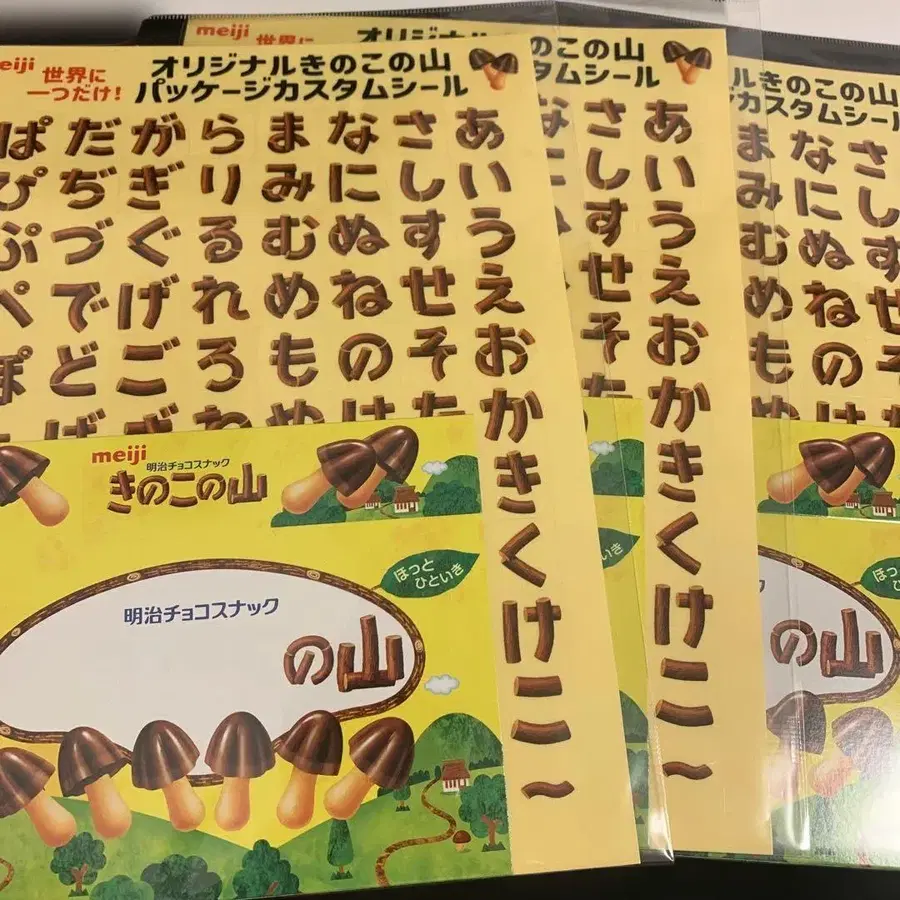 meiji
世界に
一つだけ!
オリジナルきのこの山
パッケージカスタムシール
ぱ だ が ら ま な さ あ
ぴ ぢ ぎ り み に し い
ぷ づ ぐ る む ぬ す う
ぺ で げ れ め ね せ え
ぽ ど ご ろ も の そ お
ば ざ わ や は た か
き
く
け
こ
〜
meiji
明治チョコスナック
きのこの山
ほっと
ひといき
明治チョコスナック
の山
meiji
世界に
オリジナル
のこの山
タムシール
な さ あ
し い
す う
せ え
そ お
た か
き
く
け
こ
〜
ひといき
ルきのこの山
カスタムシール
ま な さ
み に し
む ぬ す
め ね せ
も の そ
や は た
ほっと
ひといき
ク
の山